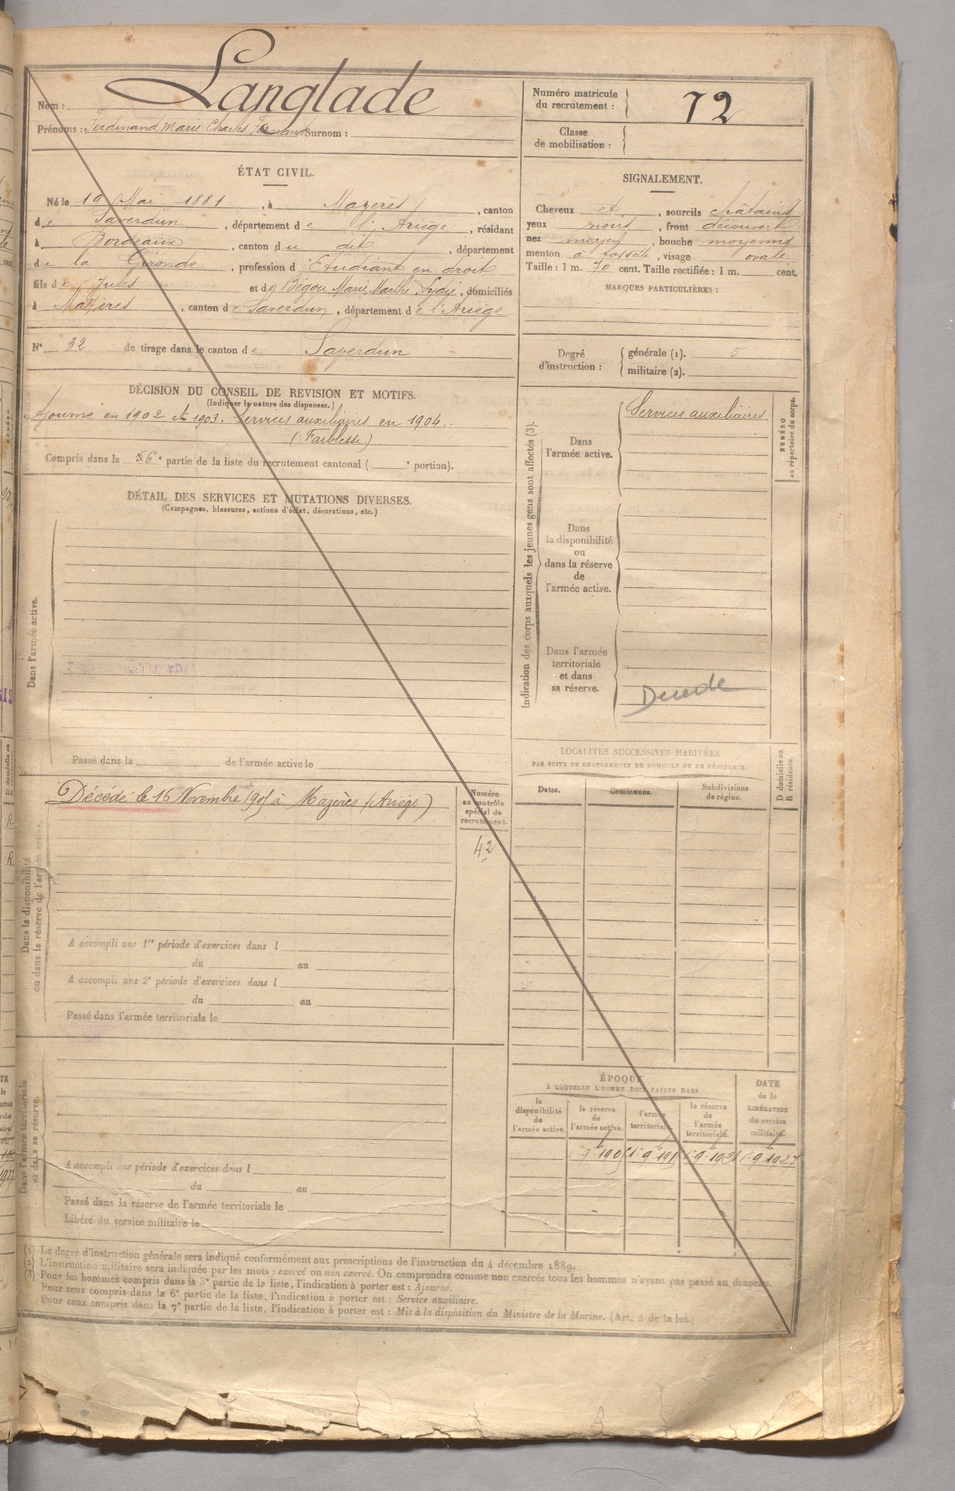 Nom : Langlade
Prénoms : Ferdinand Marie Charles Surnom :
Numéro matricule
du recrutement : 72
Classe
de mobilisation :
ÉTAT CIVIL.
Né le 19 Mai 1881, à Mazères, canton
de Saverdun, département de l'Ariège, résidant
à Bordeaux, canton du dit, département
de la Gironde, profession d'Etudiant en droit
fils de Jules et de Bégou Marie, Marthe, Lydie, domiciliés
à Mazères, canton de Saverdun, département de l'Ariège
N° 32 de tirage dans le canton de Saverdun
SIGNALEMENT.
Cheveux et, sourcils châtains
yeux noirs, front découvert
nez moyen, bouche moyenne
menton à fossette, visage ovale
Taille : 1 m. 70 cent. Taille rectifiée : 1 m. cent.
MARQUES PARTICULIÈRES :
Degré
d'instruction :
générale (1). 5
militaire (2).
DÉCISION DU CONSEIL DE REVISION ET MOTIFS.
(Indiquer la nature des dispenses.)
Ajourné en 1902 et 1903. Services auxiliaires en 1904.
(Faiblesse)
Compris dans la 6e partie de la liste du recrutement cantonal ( e portion).
DÉTAIL DES SERVICES ET MUTATIONS DIVERSES.
(Campagnes, blessures, actions d'éclat, décorations, etc.)
Dans l'armée active.
Passé dans la de l'armée active le
Indication des corps auxquels les jeunes gens sont affectés (3).
Dans
l'armée active.
Services auxiliaires
NUMÉRO
au répertoire du corps.
Dans
la disponibilité
ou
dans la réserve
de
l'armée active.
Dans l'armée
territoriale
et dans
sa réserve.
Décédé
Dans la disponibilité
ou dans la réserve de l'armée active.
Décédé le 16 Novembre 1905 à Mazères (Ariège)
Numéro
au contrôle
spécial du
recrutement.
42
A accompli une 1re période d'exercices dans l
du au
A accompli une 2e période d'exercices dans l
du au
Passé dans l'armée territoriale le
LOCALITÉS SUCCESSIVES HABITÉES
PAR SUITE DE CHANGEMENTS DE DOMICILE OU DE RÉSIDENCE.
Dates.
Communes.
Subdivisions
de région.
D domicile ou
R résidence.
Dans l'armée territoriale
et dans sa réserve.
A accompli une période d'exercices dans l
du au
Passé dans la réserve de l'armée territoriale le
Libéré du service militaire le
ÉPOQUE
À LAQUELLE L'HOMME DOIT PASSER DANS
la
disponibilité
de
l'armée active.
la réserve
de
l'armée active.
l'armée
territoriale.
la réserve
de
l'armée
territoriale.
DATE
de la
LIBÉRATION
du service
militaire.
1 9 1927
(1) Le degré d'instruction générale sera indiqué conformément aux prescriptions de l'instruction du 4 décembre 1889.
(2) L'instruction militaire sera indiquée par les mots : exercé ou non exercé. On comprendra comme non exercés tous les hommes n'ayant pas passé au drapeau.
(3) Pour les hommes compris dans la 5e partie de la liste, l'indication à porter est : Ajourné.
Pour ceux compris dans la 6e partie de la liste, l'indication à porter est : Service auxiliaire.
Pour ceux compris dans la 7e partie de la liste, l'indication à porter est : Mis à la disposition du Ministre de la Marine. (Art. 4 de la loi.)